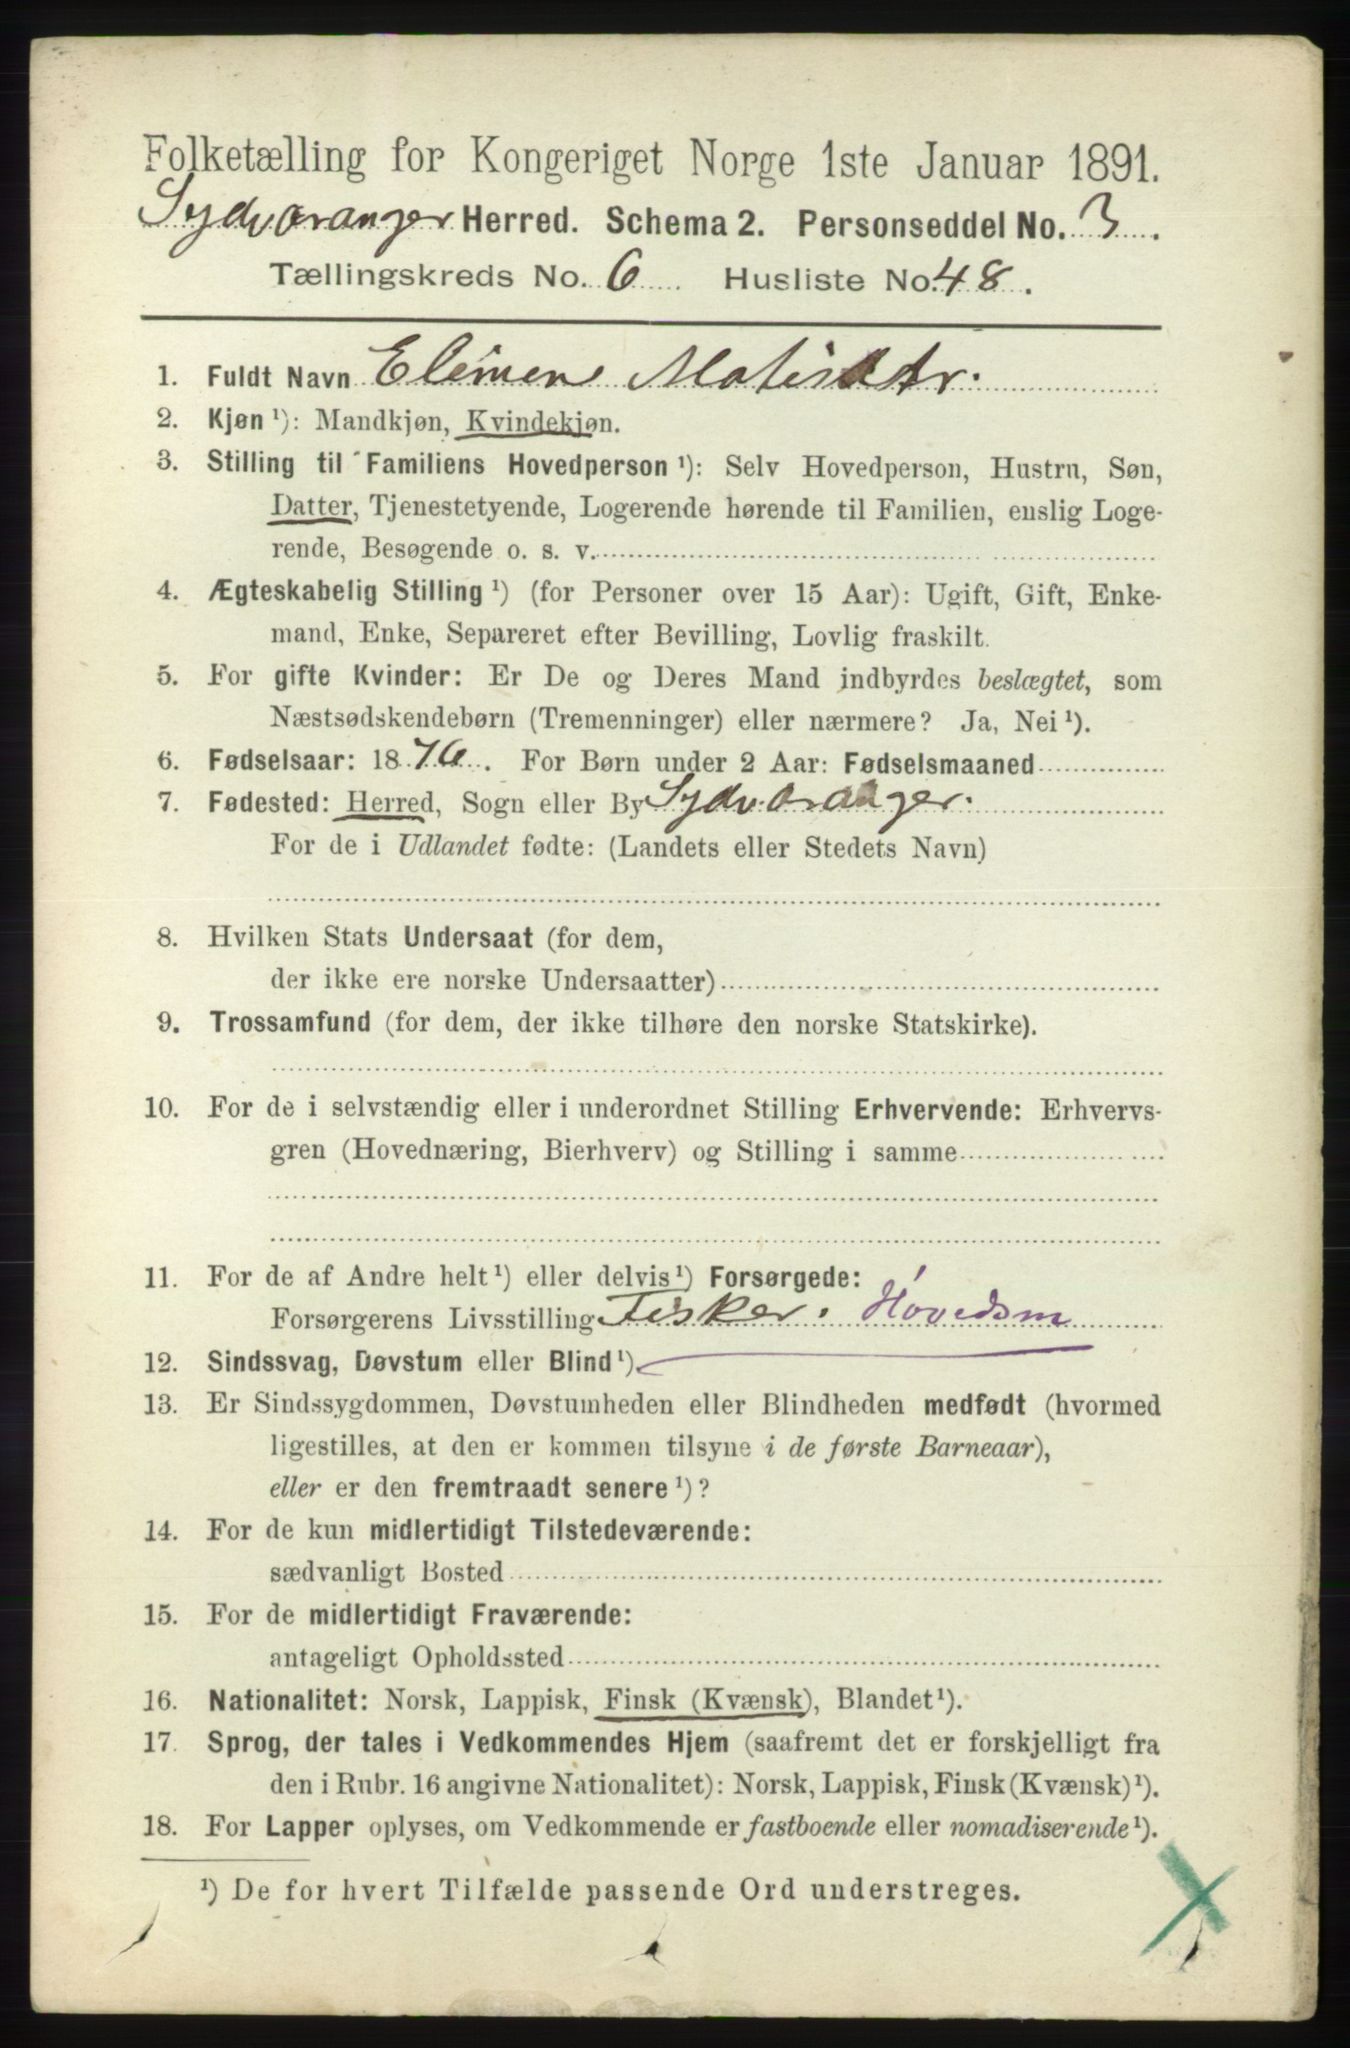 Folketælling for Kongeriget Norge 1ste Januar 1891.
Sydvaranger Herred. Schema 2. Personseddel No. 3.
Tællingskreds No. 6 Husliste No. 48.
1. Fuldt Navn Elimene Matisdtr.
2. Kjøn ¹): Mandkjøn, Kvindekjøn.
3. Stilling til Familiens Hovedperson ¹): Selv Hovedperson, Hustru, Søn,
Datter, Tjenestetyende, Logerende hørende til Familien, enslig Loge-
rende, Besøgende o. s. v.
4. Ægteskabelig Stilling ¹) (for Personer over 15 Aar): Ugift, Gift, Enke-
mand, Enke, Separeret efter Bevilling, Lovlig fraskilt.
5. For gifte Kvinder: Er De og Deres Mand indbyrdes beslægtet, som
Næstsødskendebørn (Tremenninger) eller nærmere? Ja, Nei ¹).
6. Fødselsaar: 1876. For Børn under 2 Aar: Fødselsmaaned
7. Fødested: Herred, Sogn eller By Sydvaranger.
For de i Udlandet fødte: (Landets eller Stedets Navn)
8. Hvilken Stats Undersaat (for dem,
der ikke ere norske Undersaatter)
9. Trossamfund (for dem, der ikke tilhøre den norske Statskirke).
10. For de i selvstændig eller i underordnet Stilling Erhvervende: Erhvervs-
gren (Hovednæring, Bierhverv) og Stilling i samme
11. For de af Andre helt ¹) eller delvis ¹) Forsørgede:
Forsørgerens Livsstilling Fisker. Hovedsm
12. Sindssvag, Døvstum eller Blind ¹).
13. Er Sindssygdommen, Døvstumheden eller Blindheden medfødt (hvormed
ligestilles, at den er kommen tilsyne i de første Barneaar),
eller er den fremtraadt senere ¹)?
14. For de kun midlertidigt Tilstedeværende:
sædvanligt Bosted
15. For de midlertidigt Fraværende:
antageligt Opholdssted
16. Nationalitet: Norsk, Lappisk, Finsk (Kvænsk), Blandet ¹).
17. Sprog, der tales i Vedkommendes Hjem (saafremt det er forskjelligt fra
den i Rubr. 16 angivne Nationalitet): Norsk, Lappisk, Finsk (Kvænsk) ¹).
18. For Lapper oplyses, om Vedkommende er fastboende eller nomadiserende ¹).
¹) De for hvert Tilfælde passende Ord understreges.